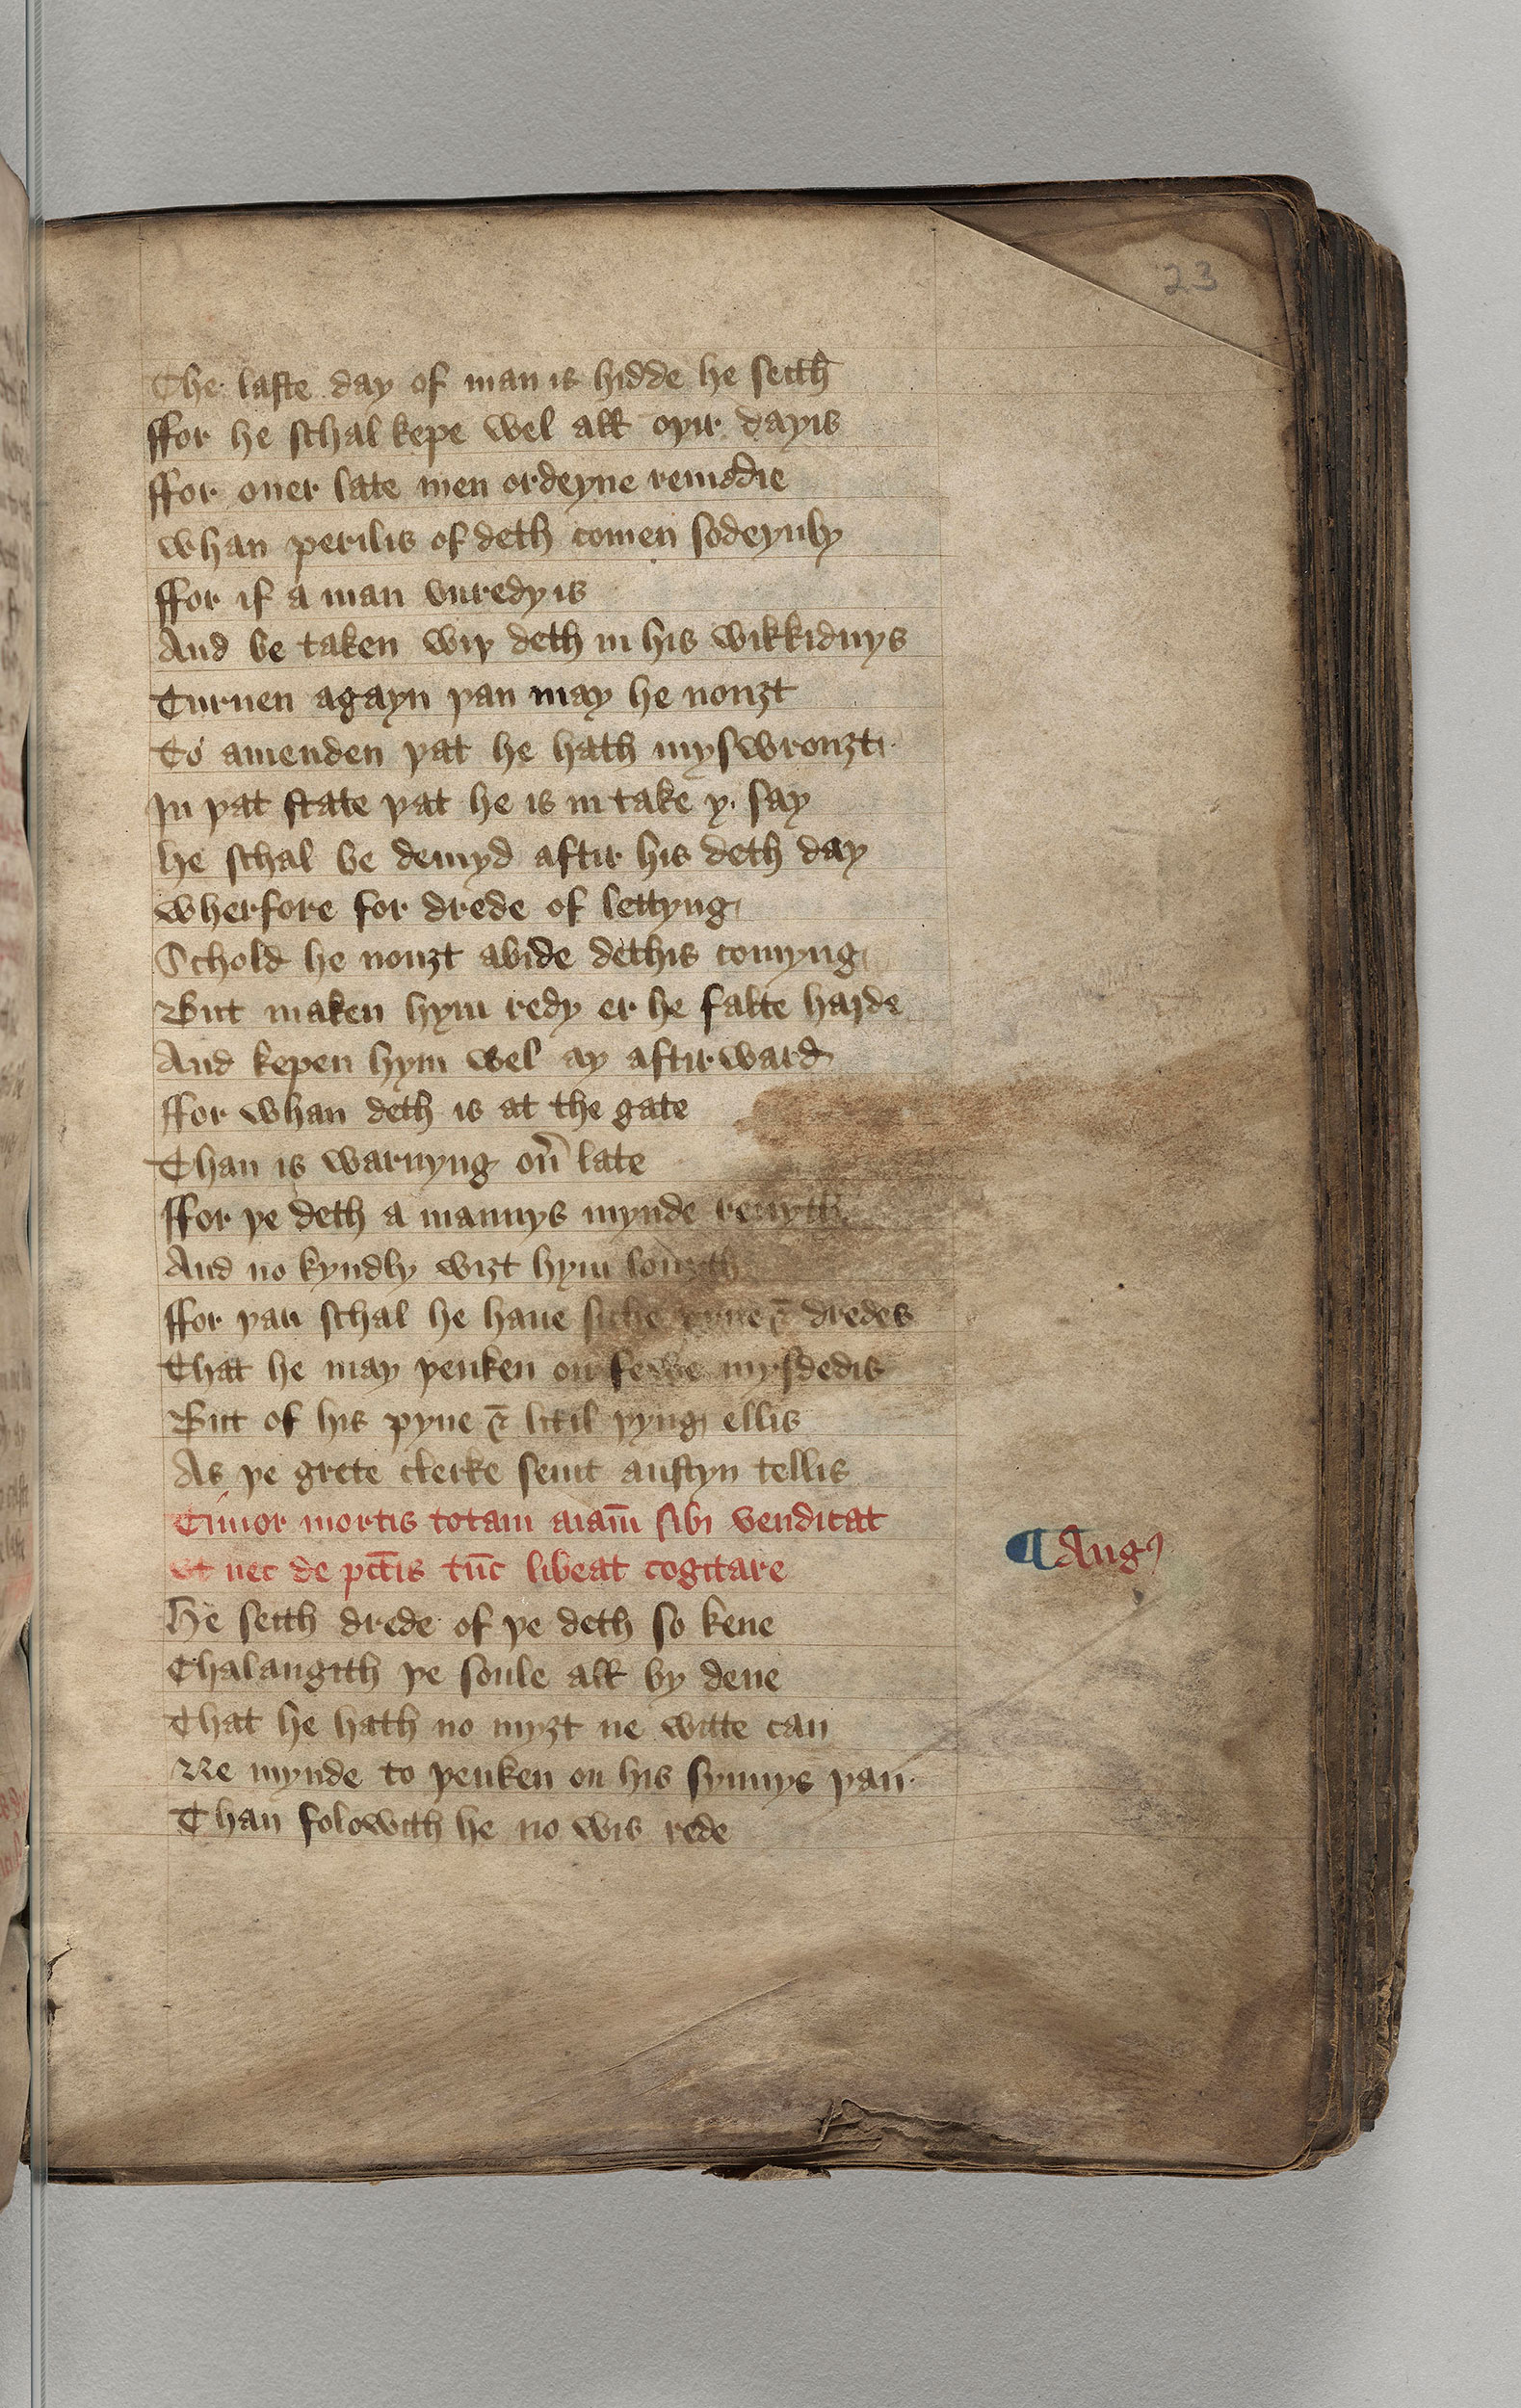 23
The laste day of man is hidde he seith
ffor he schal kepe wel all oþir dayis
ffor ouer late men ordeyne remedie
whan perilis of deth comen sodeynly
ffor if a man vnredy is
And be taken wiþ deth in his wikkidnys
Turnen agayn þan may he nouȝt
To amenden þat he hath myswrouȝt
In þat state þat he is in take y say
he schal be demyd aftir his deth day
wherfore for drede of lettyng
Schold he nouȝt abide dethis comyng
But maken hym redy er he falle harde
And kepen hym wel ay aftirward
ffor whan deth is at the gate
Than is warnyng ou̅ late
ffor þe deth a mannys mynde reuyth
And no kyndly wiȝt hym
ffor þan schal he haue siche pyne & dredes
That he may þenken on fewe mysdedis
But of his pyne & litil þyng ellis
As þe grete clerke seint austyn tellis
Timor mortis totam aiam̅ sibi vendicat
Vt nec de pct̅is tu̅c libeat cogitare
¶ Augꝰ
He seith drede of þe deth so kene
Chalangith þe soule all by dene
That he hath no myȝt ne witte can
Ne mynde to þenken on his synnys þan
Than folowith he no wis rede